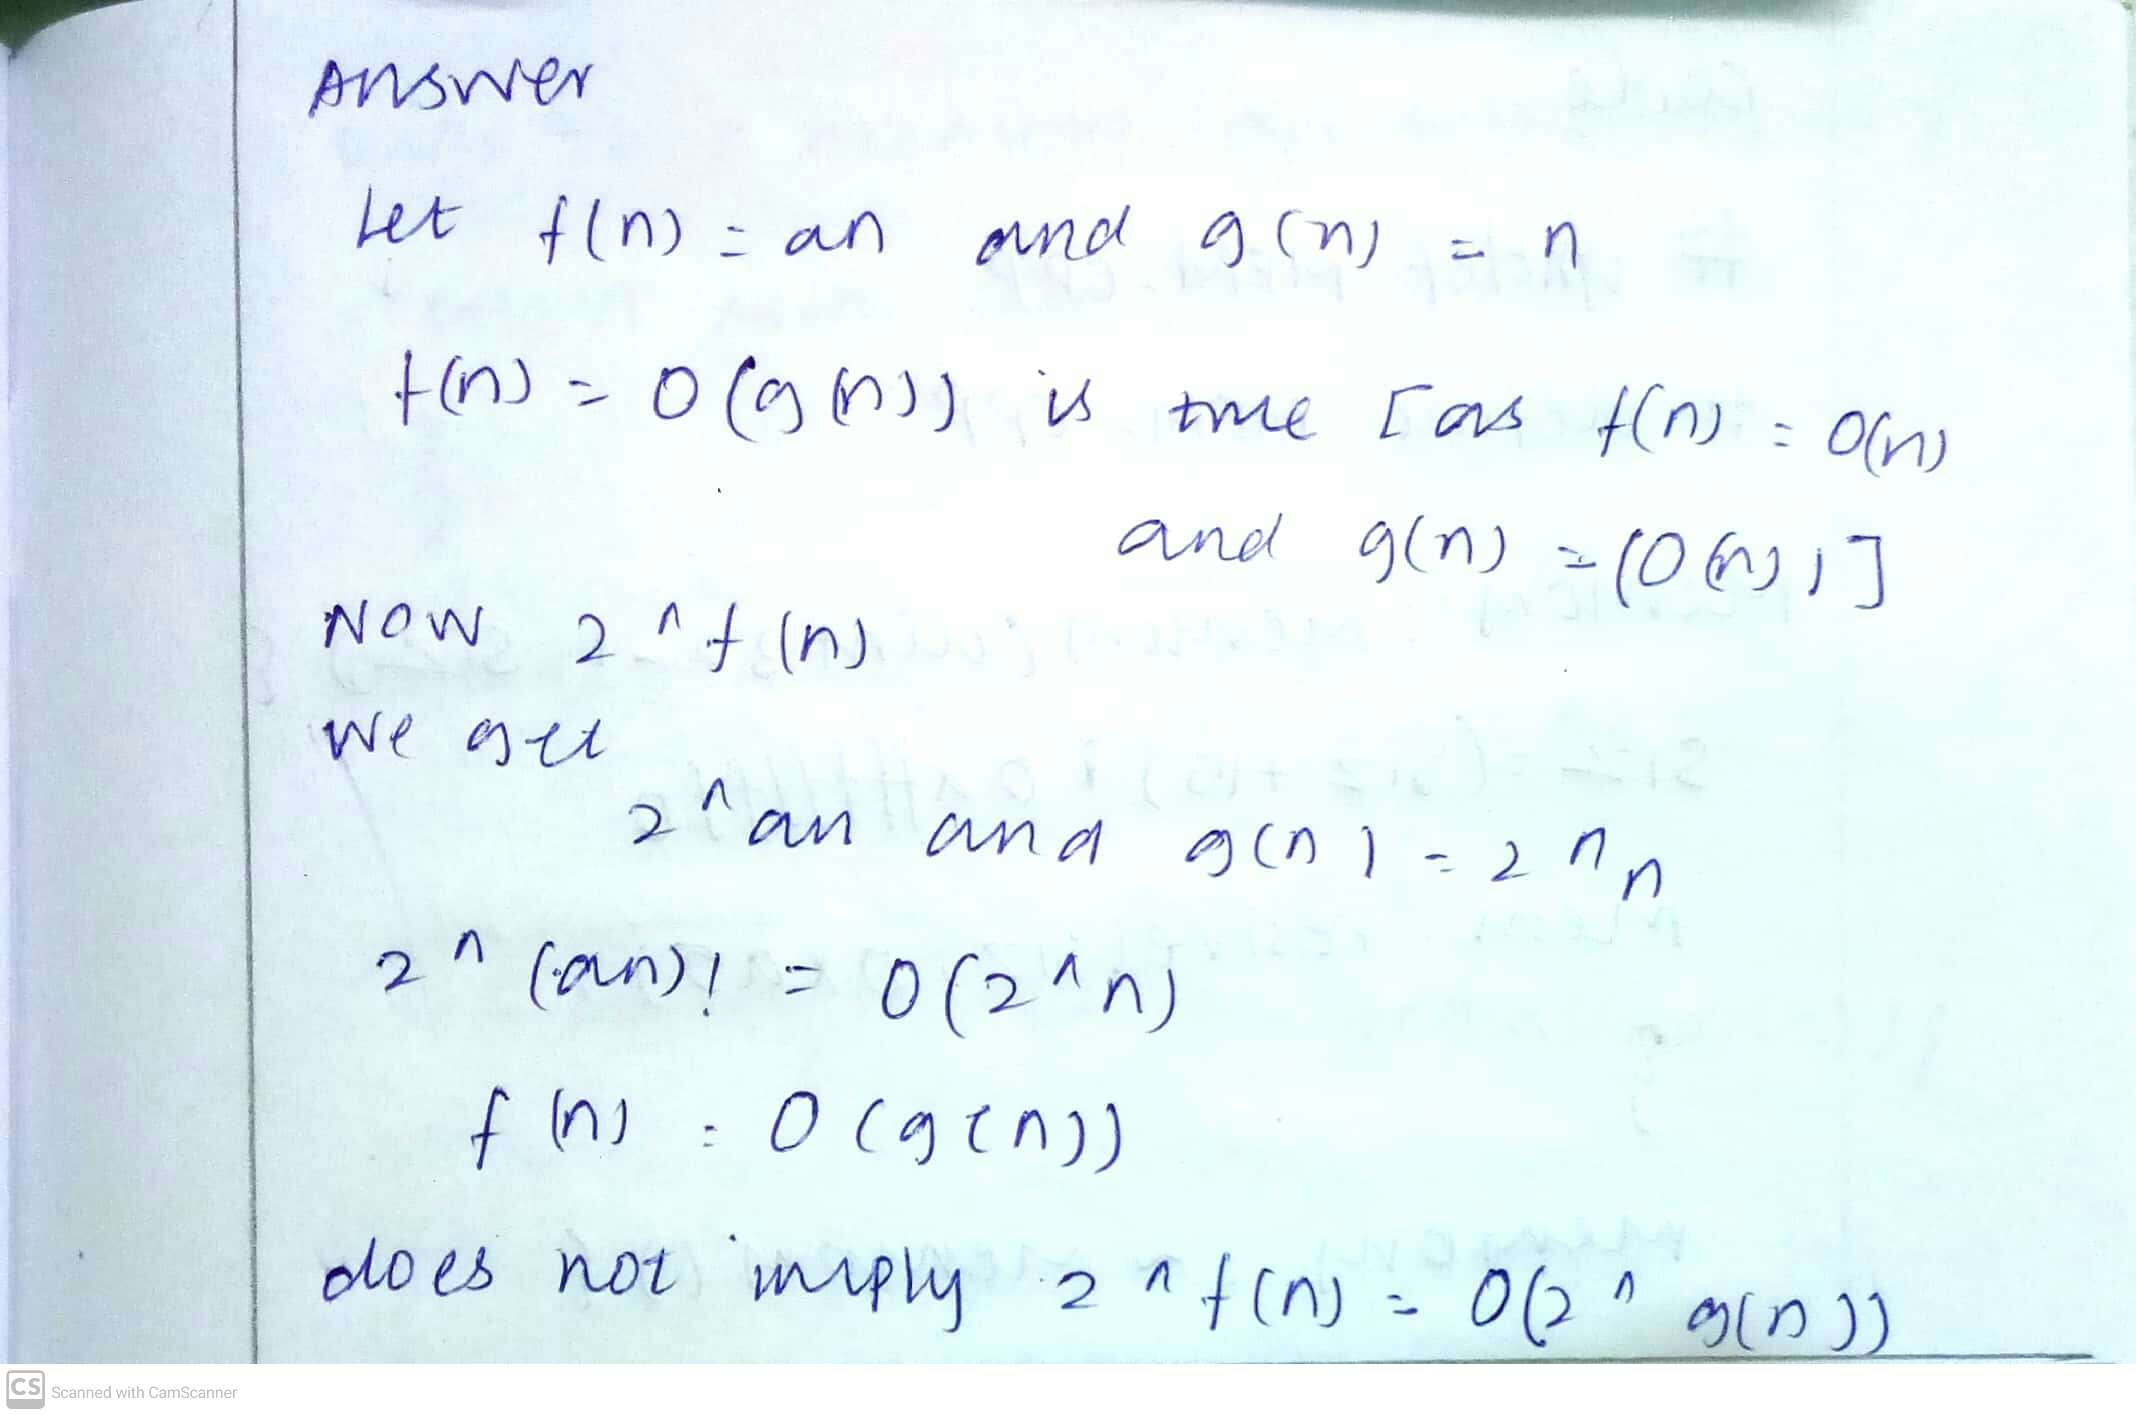 Answer
Let f(n) = an and g(n) = n
f(n) = O(g(n)) is true [as f(n) = O(n)
and g(n) = (O(n))]
NOW 2^f(n)
we get
2^an and g(n) = 2^n
2^(an)! = O(2^n)
f(n) = O(g(n))
does not imply 2^f(n) = O(2^g(n))
CS Scanned with CamScanner